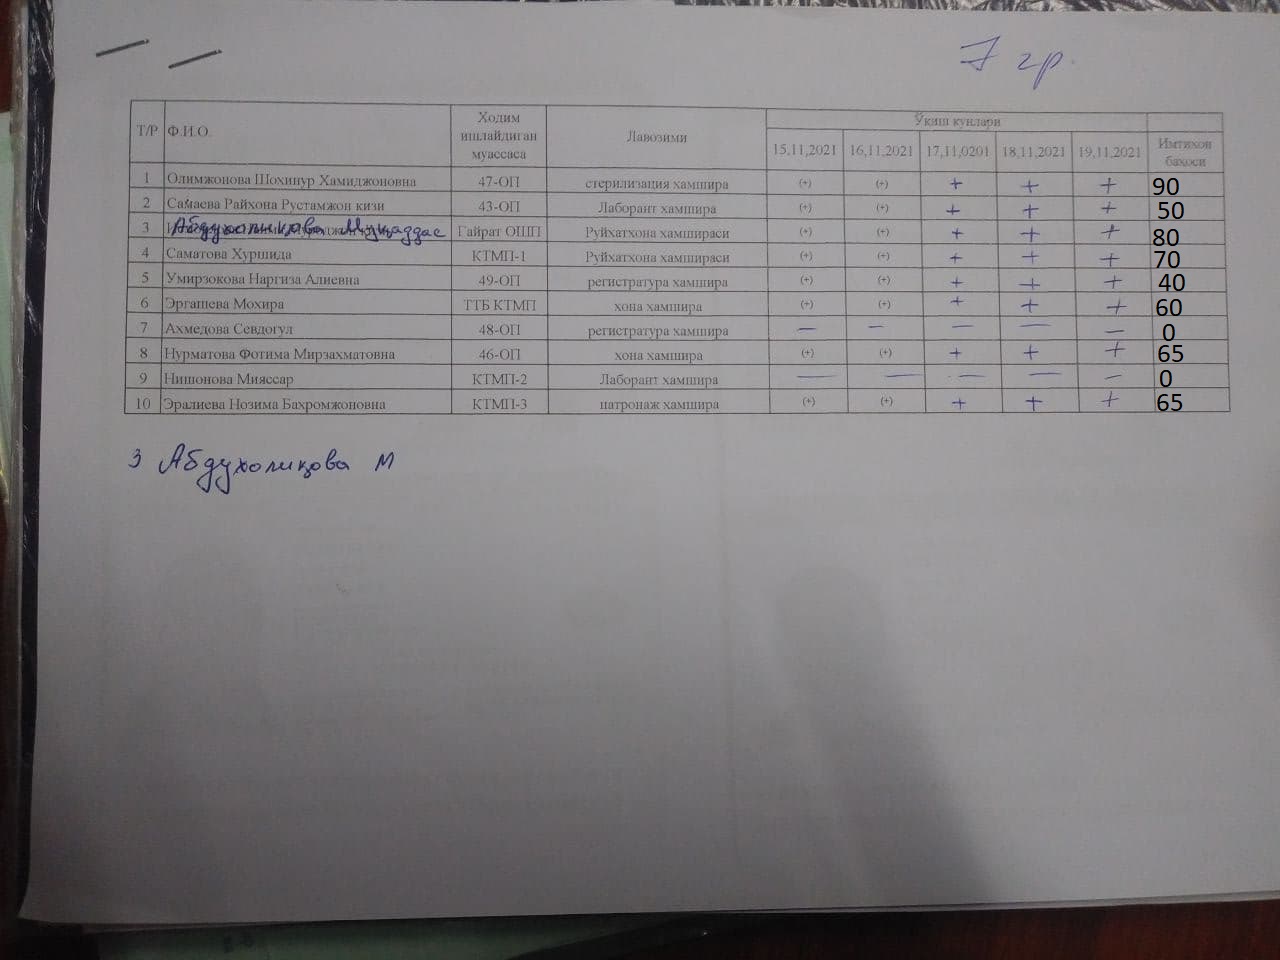 7 гр.
Т/Р Ф.И.О. Ходим ишлайдиган муассаса Лавозими Ўқиш кунлари Имтихон бахоси
15,11,2021 16,11,2021 17,11,0201 18,11,2021 19,11,2021
1 Олимжонова Шохинур Хамиджоновна 47-ОП стерилизация хамшира (+) (+) + + + 90
2 Самаева Райхона Рустамжон кизи 43-ОП Лаборант хамшира (+) (+) + + + 50
3 Абдухолиқова Муқаддас Гайрат ОШП Руйхатхона хамшираси (+) (+) + + + 80
4 Саматова Хуршида КТМП-1 Руйхатхона хамшираси (+) (+) + + + 70
5 Умирзокова Наргиза Алиевна 49-ОП регистратура хамшира (+) (+) + + + 40
6 Эргашева Мохира ТТБ КТМП хона хамшира (+) (+) + + + 60
7 Ахмедова Севдогул 48-ОП регистратура хамшира — — — — — 0
8 Нурматова Фотима Мирзахматовна 46-ОП хона хамшира (+) (+) + + + 65
9 Нишонова Мияссар КТМП-2 Лаборант хамшира — — — — — 0
10 Эралиева Нозима Бахромжоновна КТМП-3 патронаж хамшира (+) (+) + + + 65
3 Абдухолиқова М